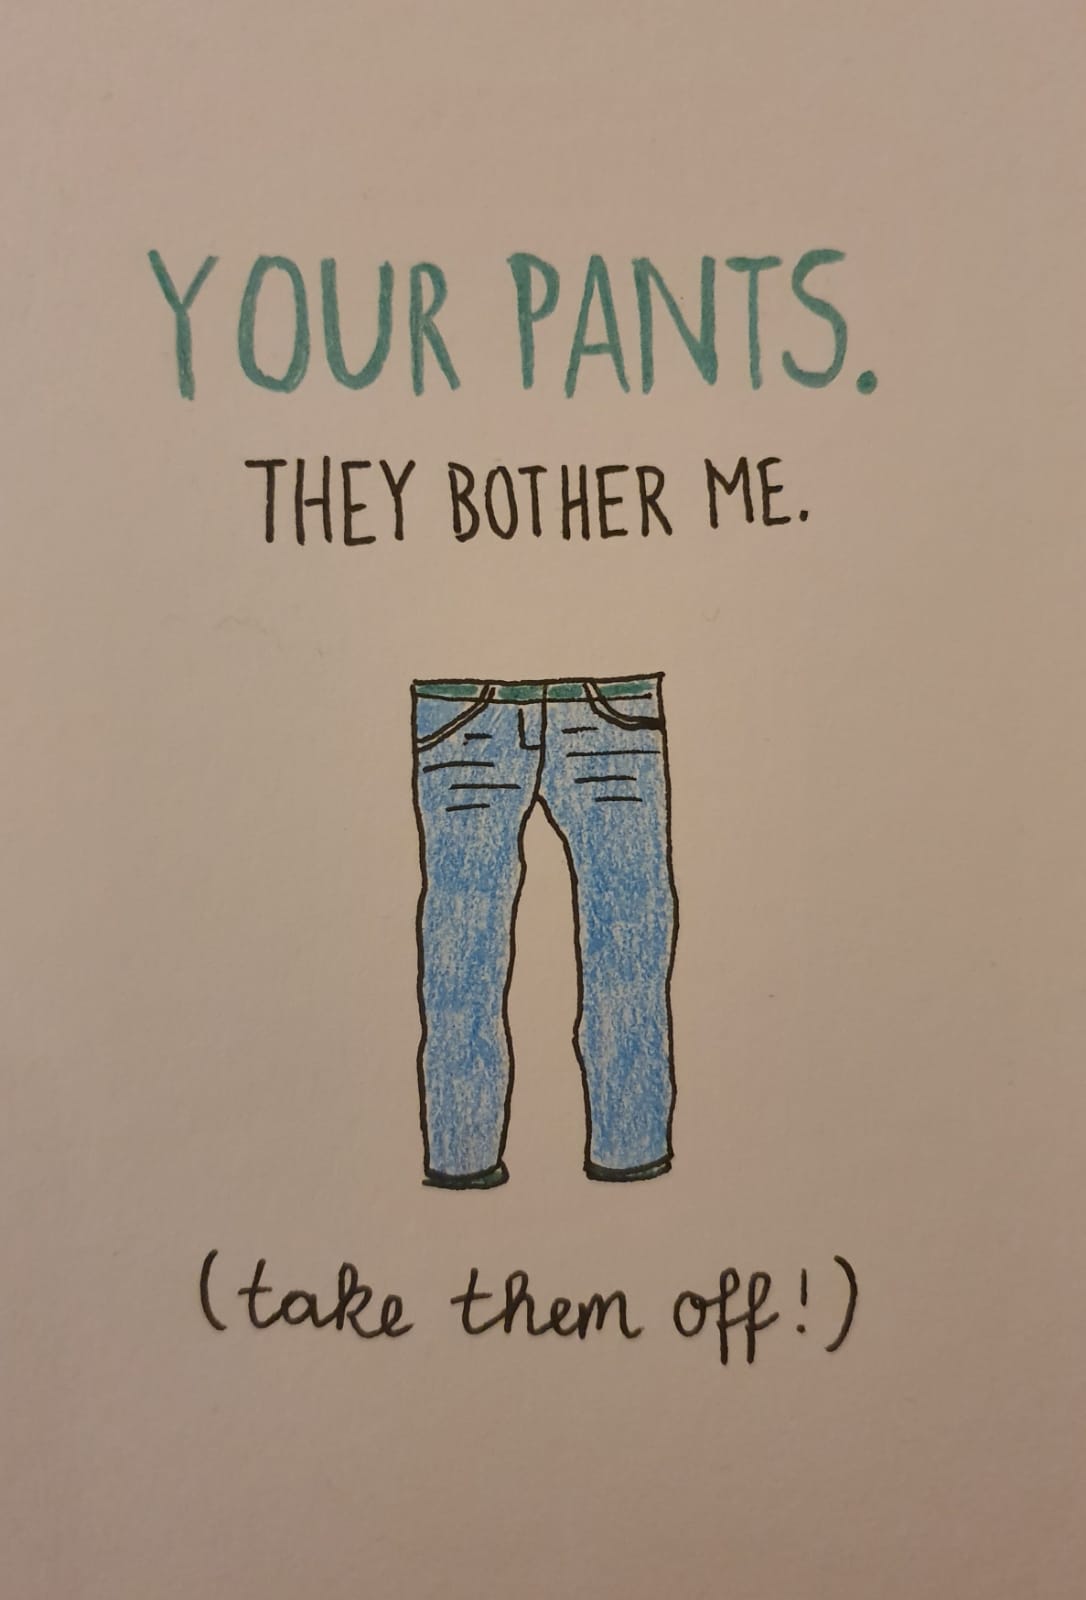 YOUR PANTS.
THEY BOTHER ME.
(take them off!)